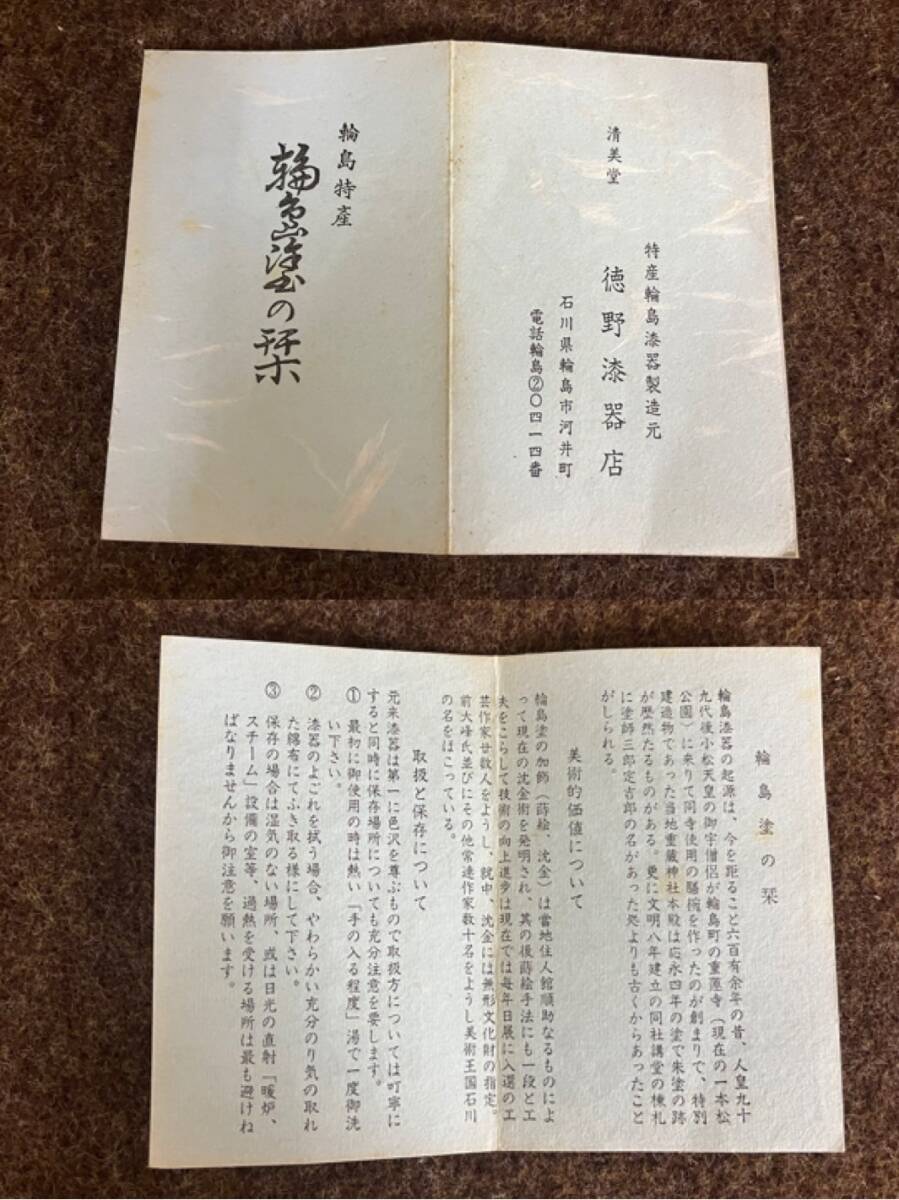 清美堂
特産輪島漆器製造元
徳野漆器店
石川県輪島市河井町
電話輪島②〇四一四番
輪島特産
輪島塗の栞
輪島塗の栞
輪島漆器の起源は、今を距ること六百有余年の昔、人皇九十
九代後小松天皇の御宇僧侶が輪島町の重蓮寺(現在の一本松
公園)に来りて同寺使用の膳椀を作ったのが創まりで、特別
建造物であった当地重蔵神社本殿は応永四年の塗で朱塗の跡
が歴然たるものがある。更に文明八年建立の同社講堂の棟札
に塗師三郎定吉郎の名があった処よりも古くからあったこと
がしられる。
美術的価値について
輪島塗の加飾(蒔絵、沈金)は当地住人館順助なるものによ
って現在の沈金術を発明され、其の後蒔絵手法にも一段と工
夫をこらして技術の向上進歩は現在では毎年日展に入選の工
芸作家廿数人をようし、就中、沈金には無形文化財の指定。
前大峰氏並びにその他常連作家数十名をようし美術王国石川
の名をほこっている。
取扱と保存について
元来漆器は第一に色沢を尊ぶもので取扱方については叮寧に
すると同時に保存場所についても充分注意を要します。
① 最初に御使用の時は熱い「手の入る程度」湯で一度御洗
い下さい。
② 漆器のよごれを拭う場合、やわらかい充分のり気の取れ
た綿布にてふき取る様にして下さい。
③ 保存の場合は湿気のない場所、或は日光の直射「暖炉、
スチーム」設備の室等、過熱を受ける場所は最も避けね
ばなりませんから御注意を願います。